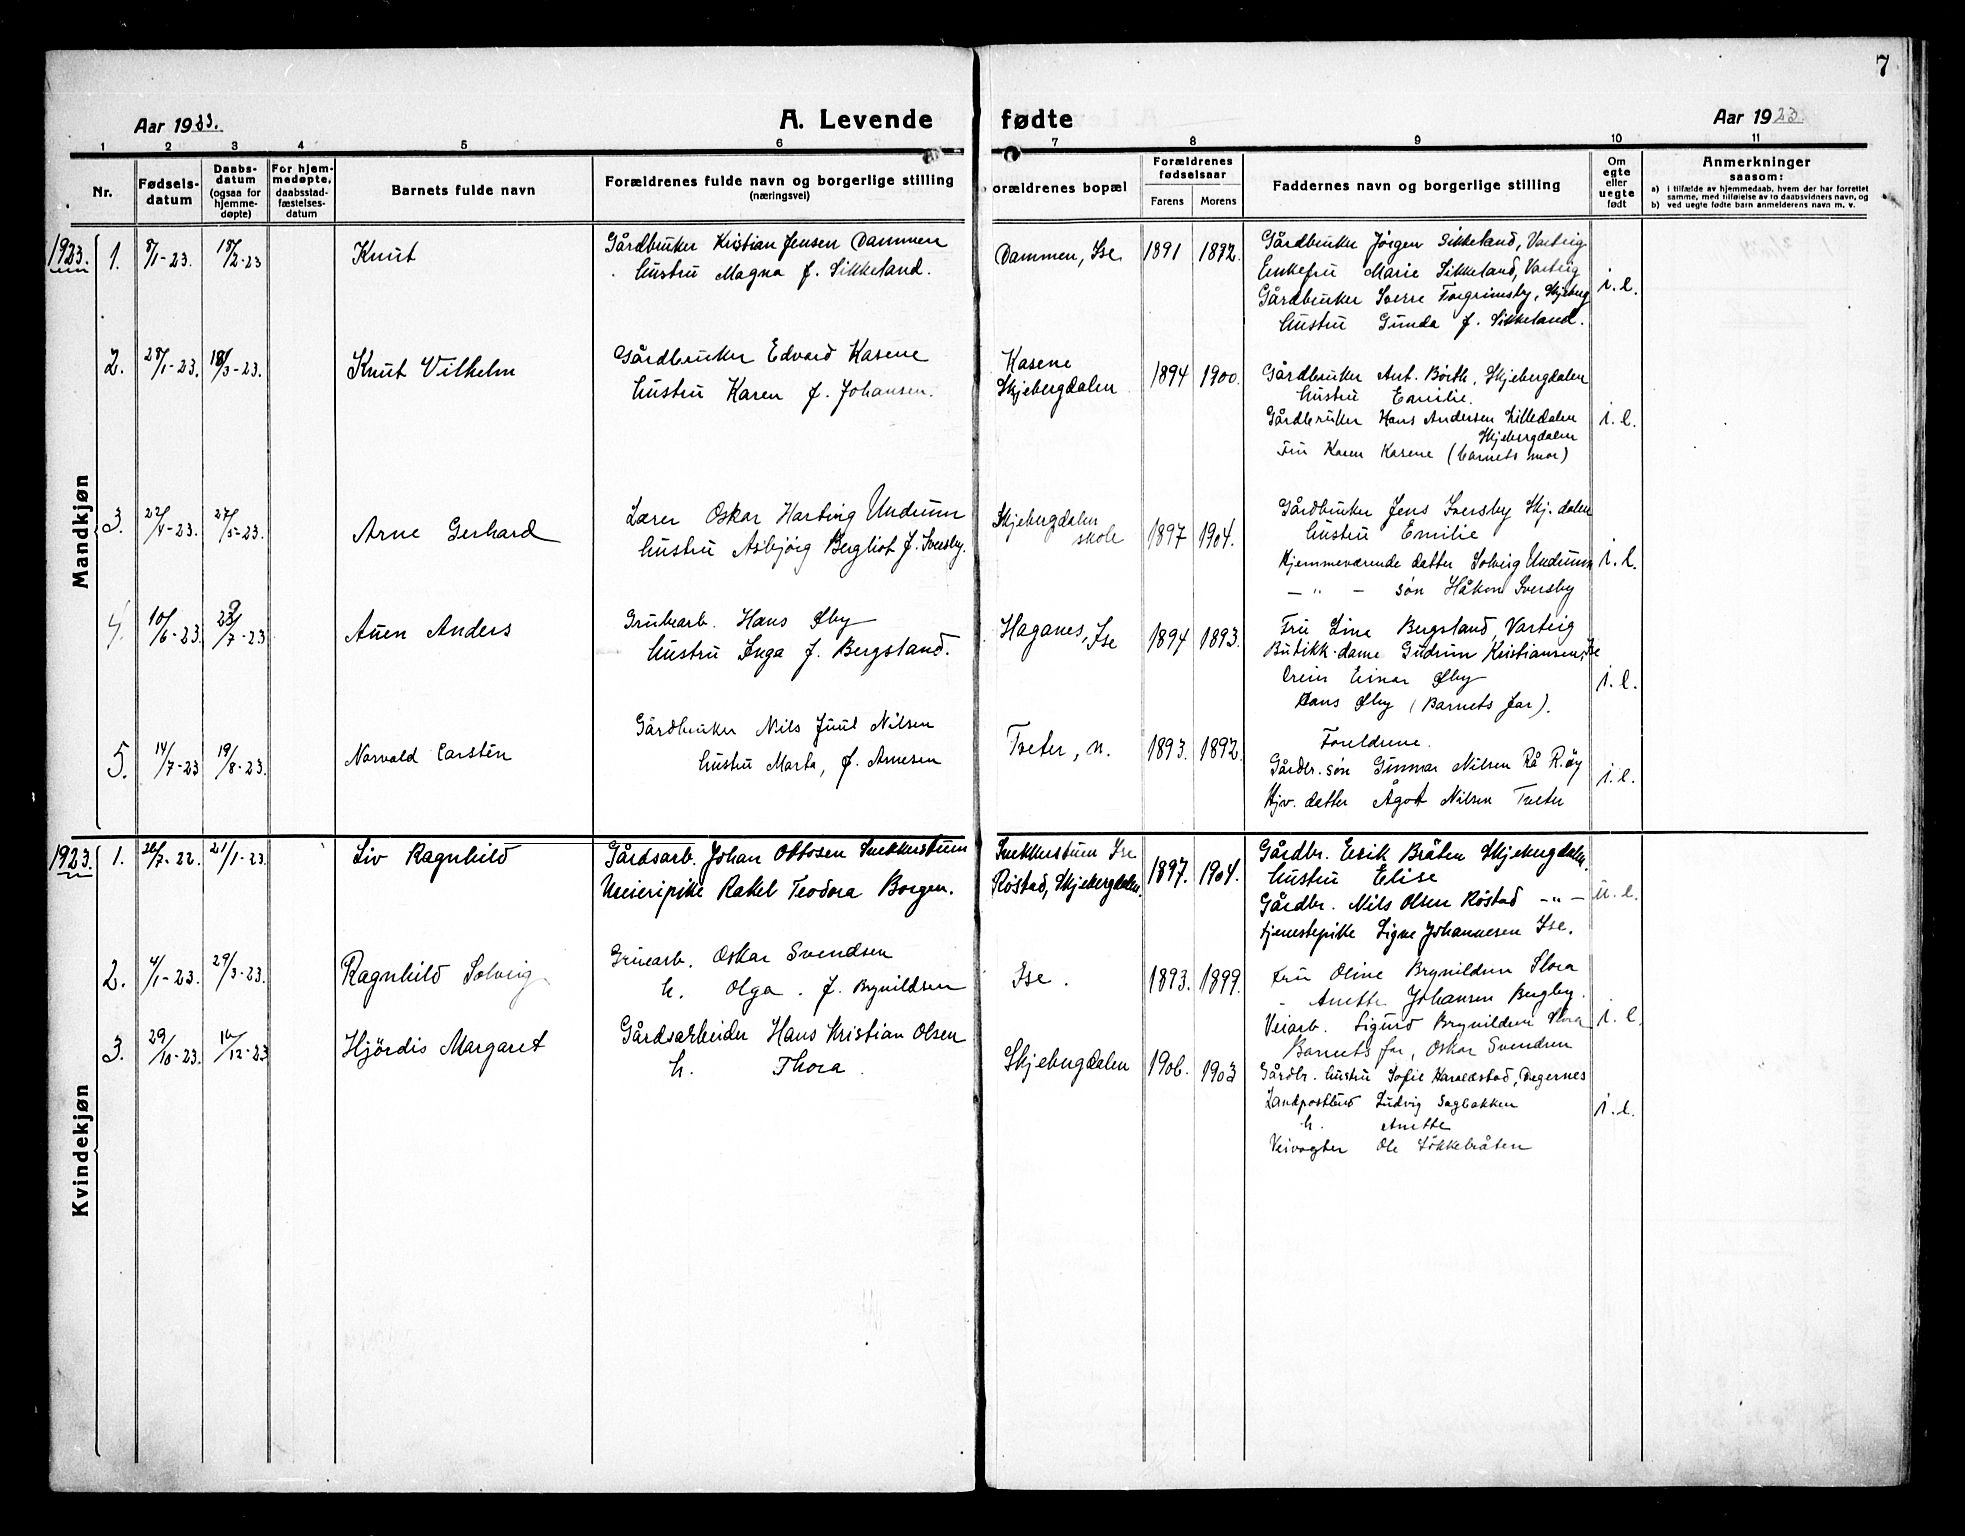 7
Aar 1923.
A. Levende fødte
Aar 1923.
1 2 3 4 5 6 7 8 9 10 11
Nr.
Fødsels-
datum
Daabs-
datum
(ogsaa for
hjemme-
døpte)
For hjem-
medøpte,
daabsstad-
fæstelses-
datum
Barnets fulde navn
Forældrenes fulde navn og borgerlige stilling
(næringsvei)
orældrenes bopæl
Forældrenes
fødselsaar
Farens Morens
Faddernes navn og borgerlige stilling
Om
egte
eller
uegte
født
Anmerkninger
saasom:
a) i tilfælde av hjemmedaab, hvem der har forrettet
samme, med tilføielse av to daabsvidners navn, og
b) ved uegte fødte barn anmelderens navn m. v.
Mandkjøn
1923.
1. 8/1-23. 18/2-23 Knut
Gårdbruker Kristian Jensen Dammen
hustru Magna f. Sikkeland.
Dammen, Ise 1891 1892.
Gårdbruker Jørgen Sikkeland, Varteig
Enkefru Marie Sikkeland, Varteig
Gårdbruker Sverre Torgrimsby, Skjeberg
hustru Gunda f. Sikkeland.
i. e.
2. 28/1-23. 18/3-23. Knut Vilhelm
Gårdbruker Edvard Kasene
hustru Karen f. Johansen.
Kasene
Skjebergdalen 1894 1900.
Gårdbruker Ant. Børth, Skjebergdalen
hustru Emilie.
Gårdbruker Hans Andersen Lilledalen
Skjebergdalen
Fru Karen Kasene (barnets mor)
i. e.
3. 22/4-23. 27/5-23. Arne Gerhard
Lærer Oskar Harting Undrum
hustru Asbjørg Bergliot f. Sversby.
Skjebergdalen
skole 1897 1904.
Gårdbruker Jens Sversby Skj. dalen
hustru Emilie
Hjemmeværende datter Solveig Undrum
— " — søn Håkon Sversby
i. e.
4. 10/6-23. /7-23 Auen Anders
Grubearb. Hans Øby
hustru Inga f. Bergsland.
Haganes, Ise 1894 1893.
Fru Lina Bergsland, Varteig
Butikk-dame Gudrun Kristiansen, Ise
Einar Øby
Hans Øby (Barnets far).
i. e.
5. 14/7-23 19/8-23. Norvald Carsten
Gårdbruker Nils Juul Nilsen
hustru Marta, f. Arnesen
Tveter, n. 1893. 1892.
Foreldrene.
Gårdbr. søn Gunnar Nilsen Rå R.øy
Hjv. datter Ågot Nilsen Tveter
i. e.
Kvindekjøn
1923.
1. 26/7-22. 21/1-23. Liv Ragnhild
Gårdsarb. Johan Ottosen Snekkerstuen
Meieripike Rakel Teodora Borgen.
Snekkerstuen Ise
Røstad, Skjebergdalen. 1897. 1904.
Gårdbr. Erik Bråten Skjebergdalen.
hustru Elise
Gårdbr. Nils Olsen Røstad — " —
tjenestepike Signe Johannesen Ise.
u. e.
2. 4/1-23. 29/3-23. Ragnhild Solveig
Gruearb. Oskar Svendsen
h. Olga. f. Brynildsen
Ise. 1893. 1899.
Fru Oline Brynildsen Flora
" Anette Johansen Bergby.
Veiarb. Sigurd Brynildsen Flora
Barnets far, Oskar Svendsen
i. e.
3. 29/10-23. 16/12-23 Hjørdis Margaret
Gårdsarbeider Hans Kristian Olsen
h. Thora.
Skjebergdalen 1906. 1903
Gårdbr. hustru Sofie Haraldstad, Degernes
Landpostbud Ludvig Sagbakken
h. Anette
Veivogter Ole Løkkebråten
i. e.